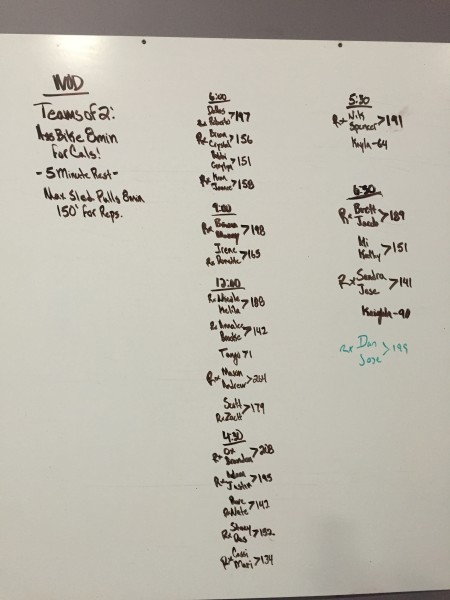 WOD
Teams of 2:
Ass Bike 8min
For Cals!
- 5 Minute Rest -
Max Sled Pulls 8min
150' for Reps.
6:00
Dallas
Rx Roberto >197
Rx Brian
Crystal >156
Bobbi
>151
Rx
>158
9:00
Rx
>198
Irene
Rx Danette >165
12:00
Rx Nicole
>188
Rx Annalee
Brooke >142
Tanya >1
Rx Mason
Andrew >204
Scott
Rx Zach >179
4:30
Rx Ox
Brandon >208
Rx Adam
Justin >195
Rx Nate >142
Rx Stacy
Das >182
Rx Cassi
Mari >134
5:30
Rx Nik
Spencer >191
Kayla - 64
6:30
Rx Brett
Jacob >189
Mi
Kathy >151
Rx Sandra
Jase >141
Keighla - 90
Rx Dan
Jose >199